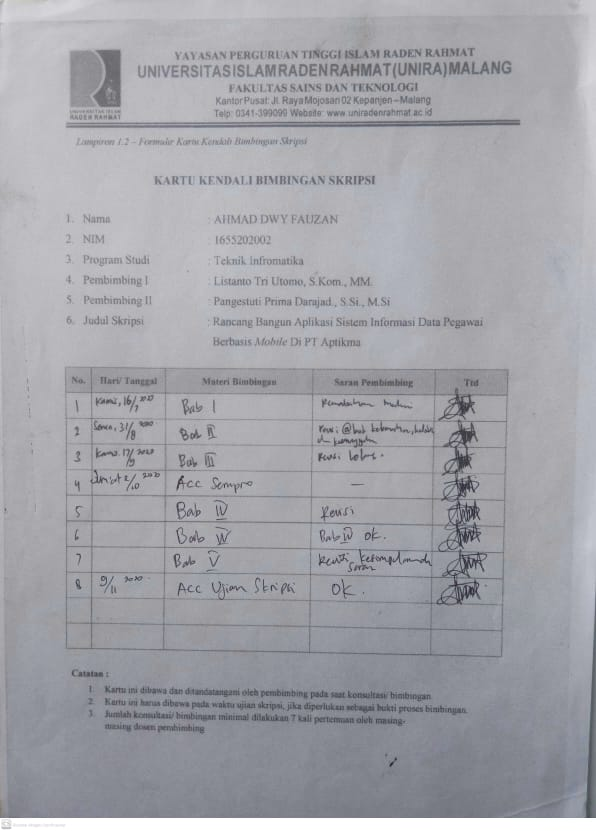 YAYASAN PERGURUAN TINGGI ISLAM RADEN RAHMAT
UNIVERSITAS ISLAM RADEN RAHMAT (UNIRA) MALANG
FAKULTAS SAINS DAN TEKNOLOGI
Kantor Pusat: Jl. Raya Mojosari 02 Kepanjen – Malang
Telp: 0341-399099 Website: www.uniradenrahmat.ac.id
UNIVERSITAS ISLAM
RADEN RAHMAT
Lampiran 1.2 – Formulir Kartu Kendali Bimbingan Skripsi
KARTU KENDALI BIMBINGAN SKRIPSI
1. Nama : AHMAD DWY FAUZAN
2. NIM : 1655202002
3. Program Studi : Teknik Infromatika
4. Pembimbing I : Listanto Tri Utomo, S.Kom., MM.
5. Pembimbing II : Pangestuti Prima Darajad., S.Si., M.Si
6. Judul Skripsi : Rancang Bangun Aplikasi Sistem Informasi Data Pegawai
Berbasis Mobile Di PT Aptikma
No. Hari/ Tanggal Materi Bimbingan Saran Pembimbing Ttd
1 Kamis, 16/7 2020 Bab I
2 Senin, 31/8 2020 Bab II
3 Kamis 17/9 2020 Bab III Revisi
4 2/10 2020 Acc Sempro –
5 Bab IV Revisi
6 Bab IV Bab IV ok.
7 Bab V saran
8 9/11 2020 Acc Ujian Skripsi OK.
Catatan :
1. Kartu ini dibawa dan ditandatangani oleh pembimbing pada saat konsultasi/ bimbingan
2. Kartu ini harus dibawa pada waktu ujian skripsi, jika diperlukan sebagai bukti proses bimbingan.
3. Jumlah konsultasi/ bimbingan minimal dilakukan 7 kali pertemuan oleh masing-
masing dosen pembimbing